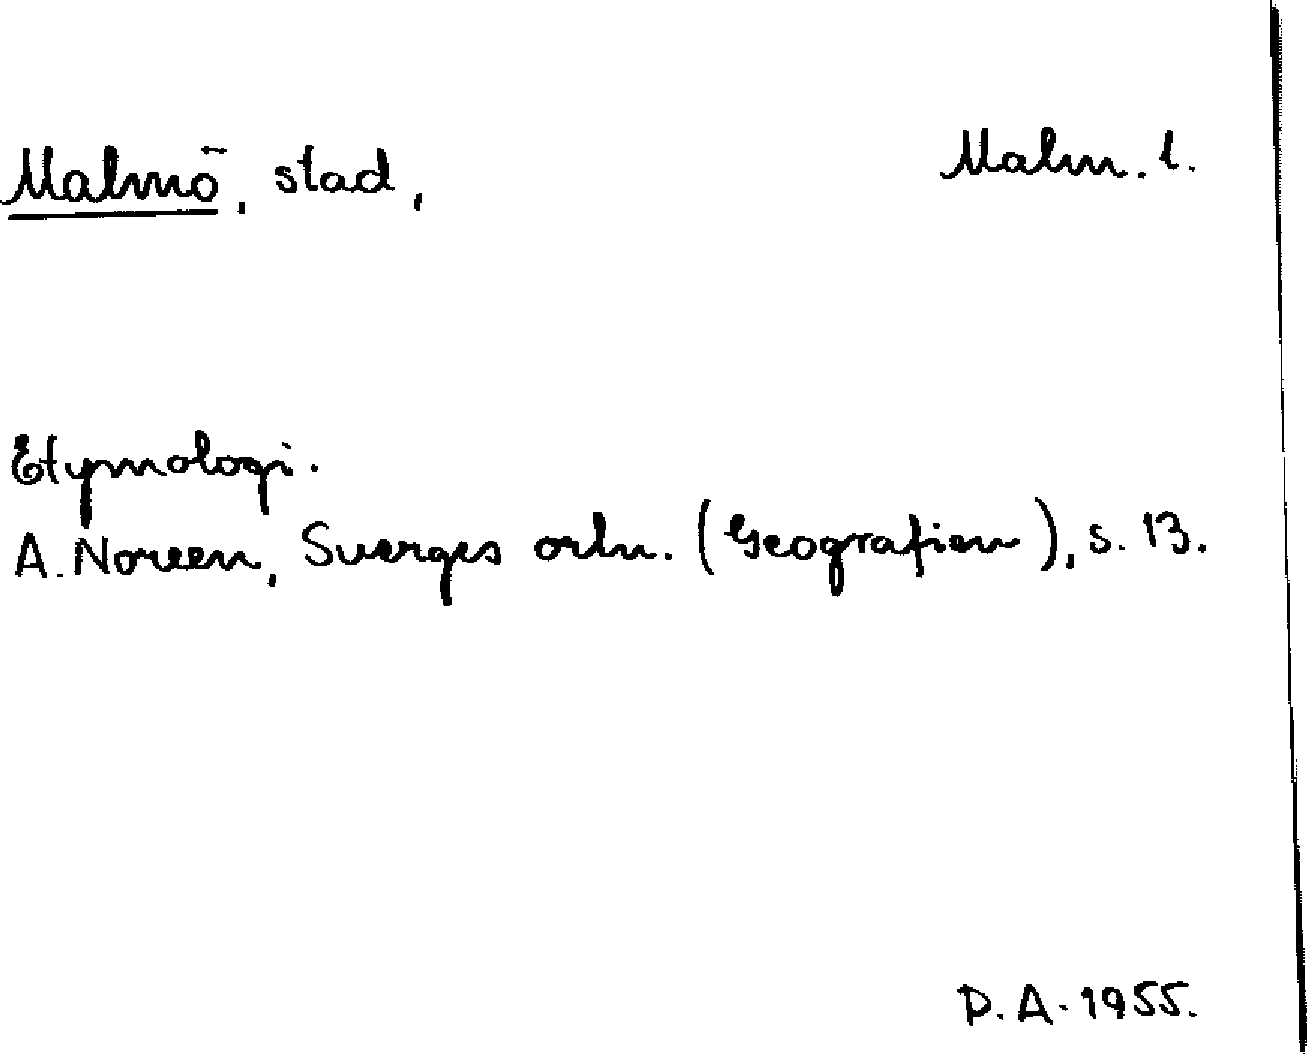 Malmö, stad,
Malm. l.
Etymologi.
A. Noreen, Sverges ortn. (Geografien), s. 13.
D. A. 1955.